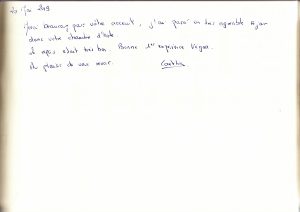 Merci beaucoup pour votre accueil, j'ai passé un très agréable séjour
dans votre chambre d'hôte.
Le repas était très bon. Bonne 1ère expérience Végan.
Au plaisir de vous revoir.